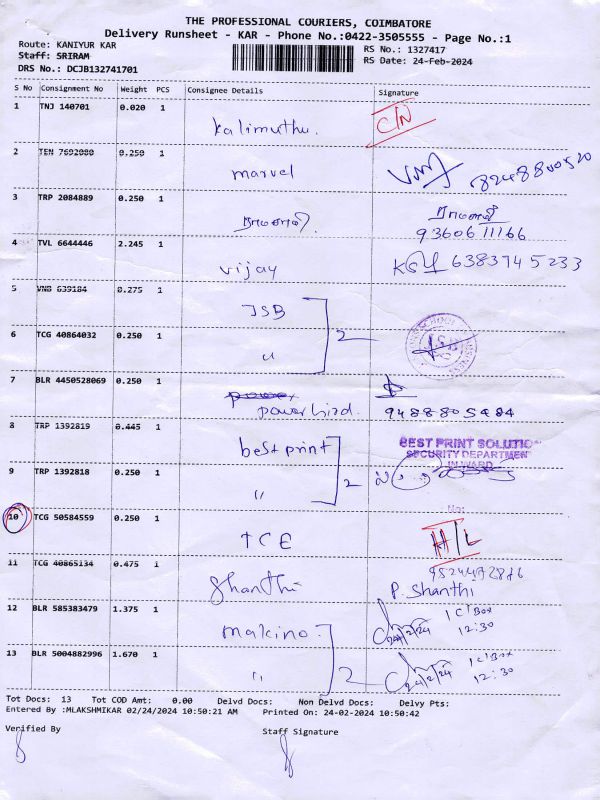 THE PROFESSIONAL COURIERS, COIMBATORE
Delivery Runsheet - KAR - Phone No.:0422-3505555 - Page No.:1
Route: KANIYUR KAR RS No.: 1327417
Staff: SRIRAM RS Date: 24-Feb-2024
DRS No.: DCJB132741701
S No Consignment No Weight PCS Consignee Details Signature
1 TNJ 140701 0.020 1 Kalimuthu. C/N
2 TEN 7692080 0.250 1 marvel 8248800520
3 TRP 2084889 0.250 1
9360611166
4 TVL 6644446 2.245 1 vijay 6383745233
5 VNB 639184 0.275 1 JSB
2
6 TCG 40864032 0.250 1 "
7 BLR 4450528069 0.250 1 power
powerbird. 9488805484
8 TRP 1392819 0.445 1 best print BEST PRINT SOLUTIO
SECURITY DEPARTMEN
IN WARD
2
9 TRP 1392818 0.250 1 "
No:
10 TCG 50584559 0.250 1 TCE H/L
11 TCG 40865134 0.475 1 Shanthi P. Shanthi
12 BLR 585383479 1.375 1 makino. 24/2/24 1 C'Box
12:30
2
13 BLR 5004882996 1.670 1 " 24/2/24 1 C'Box
12:30
Tot Docs: 13 Tot COD Amt: 0.00 Delvd Docs: Non Delvd Docs: Delvy Pts:
Entered By :MLAKSHMIKAR 02/24/2024 10:50:21 AM Printed On: 24-02-2024 10:50:42
Verified By Staff Signature